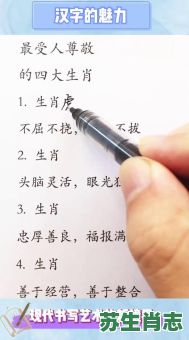 汉字的魅力
最受人尊敬
的四大生肖
1. 生肖虎
不屈不挠, 不拔
2. 生肖
头脑灵活, 眼光
3. 生肖
忠厚善良, 福报满
4. 生肖
善于经营, 善于整合
现代书写艺术
苏生肖志